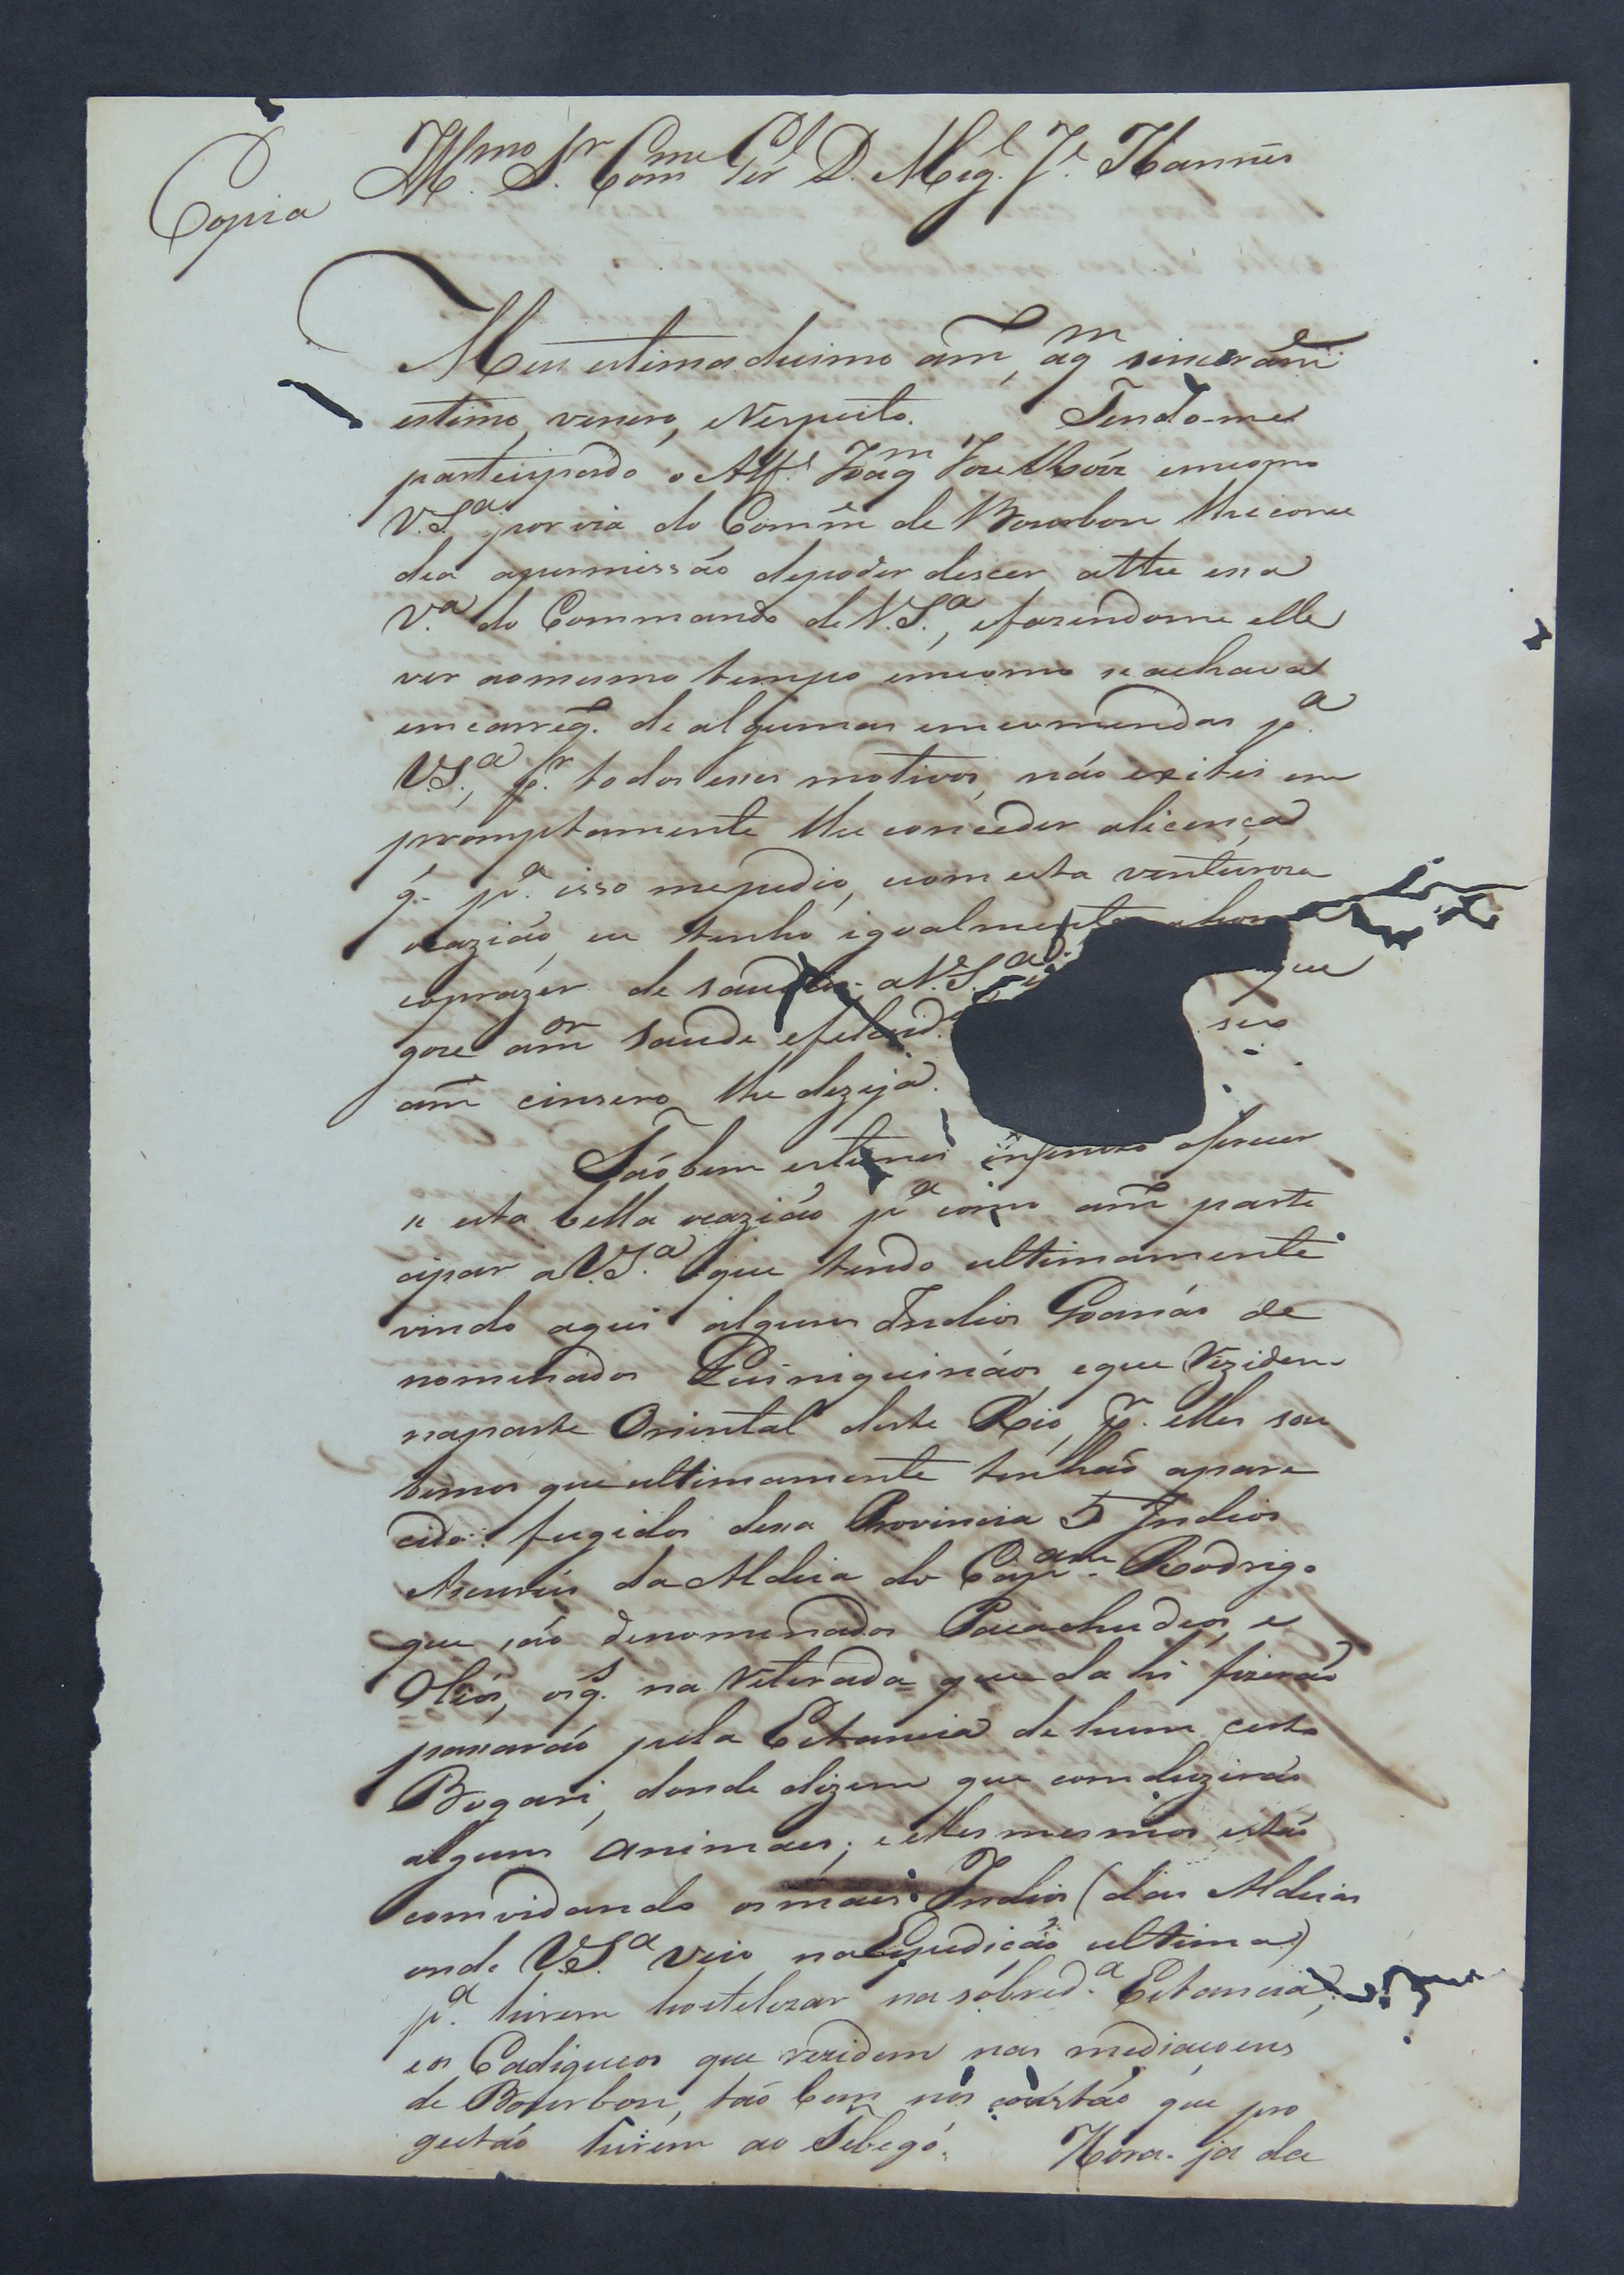 Copia
Illmo Sr. Comme Ger D. Mig.l J.e Ibanñes
Meu estimadissimo amo, aqm sincerame
estimo, venero, eRespeito. Tendo-me
participado o Alfs Joaqm Joze emcomo
V.S.a por via do Comme de Bourbon lhe conce
deo apermissão depoder descer athe essa
V.a do Commando de V.S.a, efazendome elle
ver aomesmo tempo emcomo seachava
emcarreg. de algumas emcomendas p.a
V.S.a, p.r todos esses motivos, não exitei em
promptamente lhe conceder alicença
q. p.a isso mepedio, ecom esta venturosa
ocazião, eu tenho igualmente ahon
eoprazer de saudar aV.S.a que
goze amor saude efelecid. seo
amo cinsero lhe dezeja.
Tãobem estimei infenito oferecer
se esta bella ocazião p.a como amo parte
cipar aV.S.a que tendo ultimamente
vindo aqui alguns Indios Goanás de
nominados Quiniquináos, eque Rezidem
naparte Oriental deste Rio, p.r elles sou
bemos que ultimamente tenhão apare
cido fugidos dessa Provincia 5 Indios
da Aldeia do Capam Rodrigo
que são denominados e
os q. na Retirada que da hi fizerão
passarão pela Estancia de hum certo
Bogari, donde dizem que comduzirão
alguns animaes; eelles mesmos estão
comvidando osmais Indios (das Aldeias
onde V.S.a veio naExpedição ultima)
p.a hirem hostelizar na sobred.a Estancia,
eos Cadigueos que rezidem nas mediaçoens
de Bourbon, tão bem nos cónstão que pro
gectão hirem ao Sebegó. Hora ja da